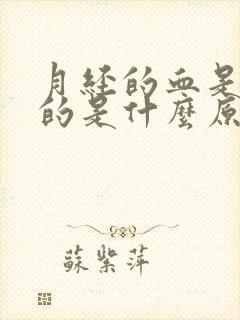 月经的血是
的是什麼原
蘇紫萍